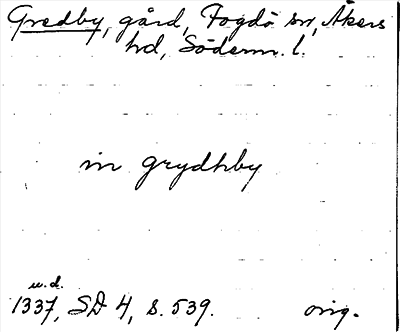 Gredby, gård, Fogdö sn, Åkers
hd, Söderm. l.
in grydhby
u.d.
1337, SD 4, s. 539. orig.